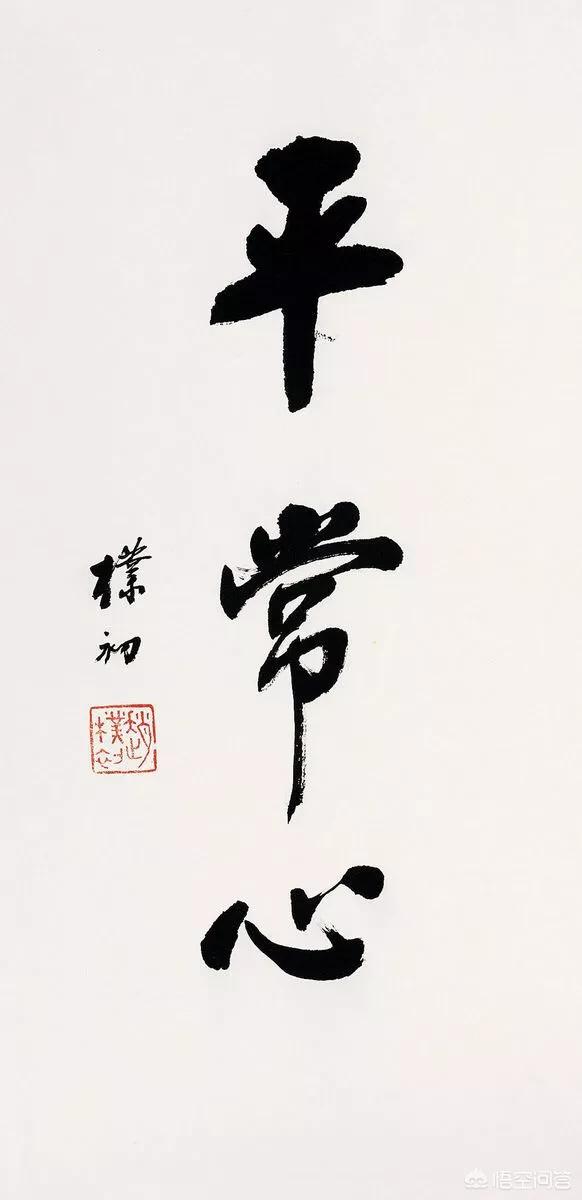 平常心
樸初
趙樸初
悟空问答